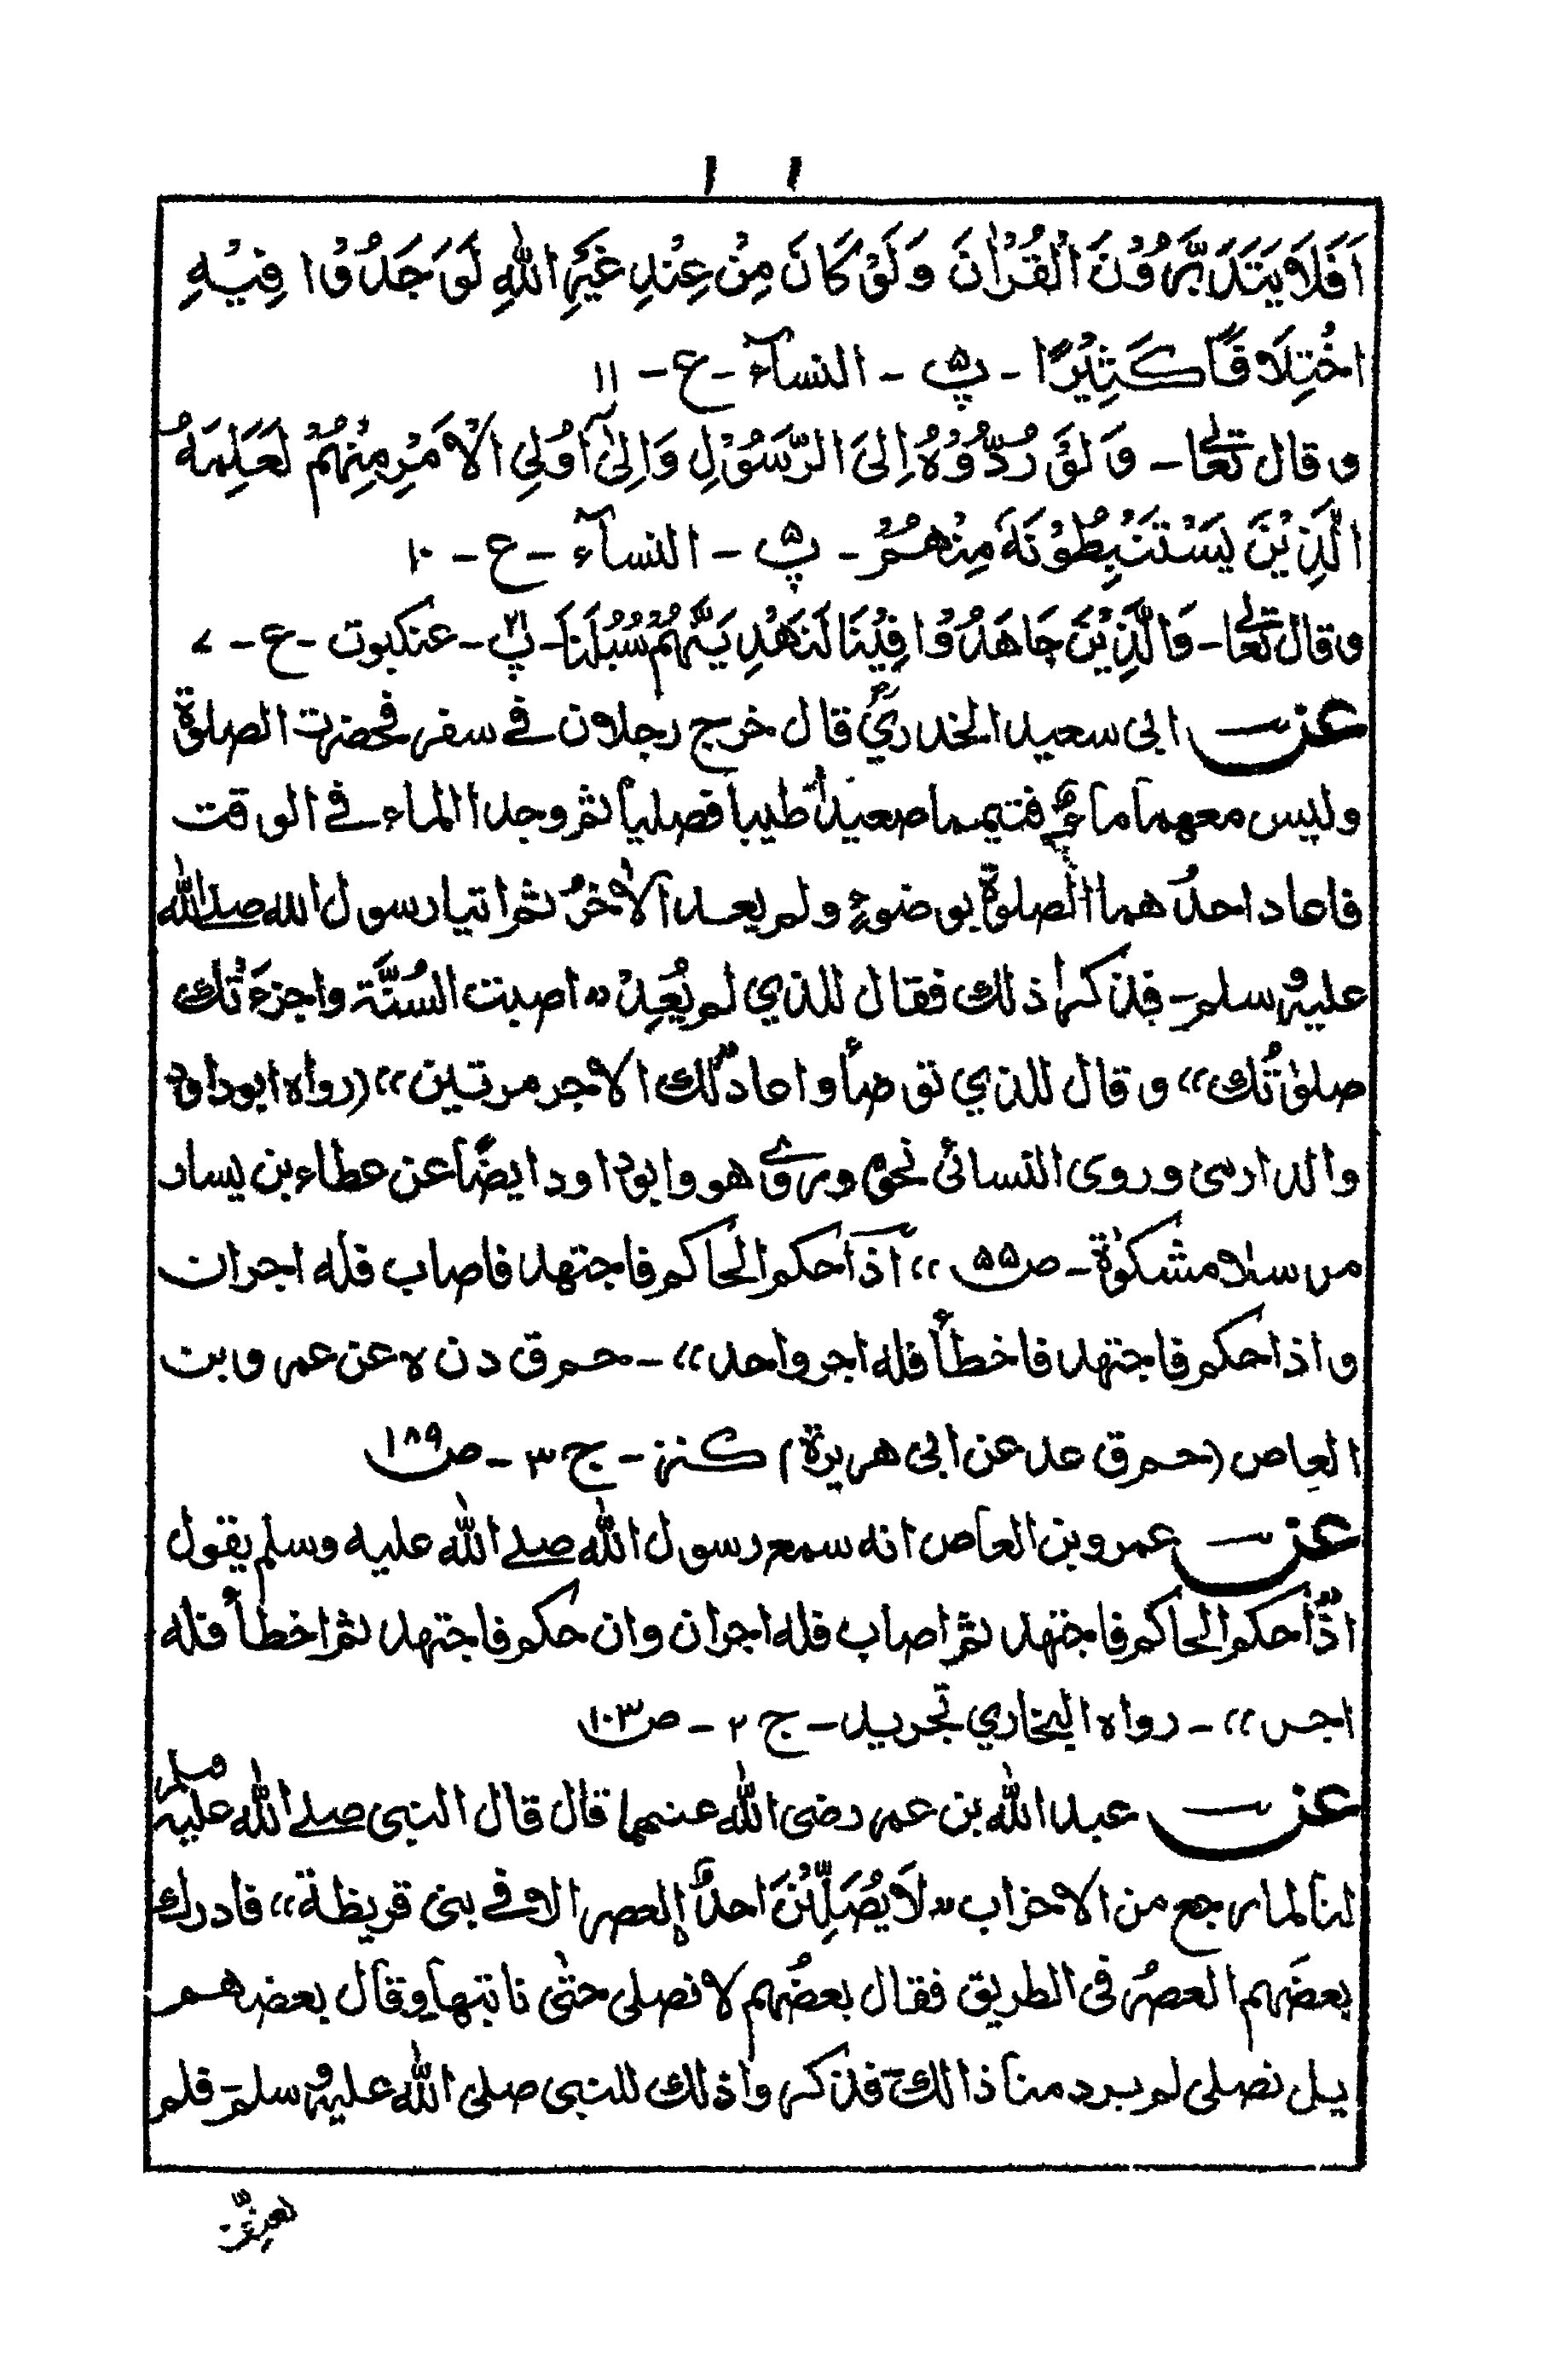 ۱۱
اَفَلَا يَتَدَبَّرُوْنَ الْقُرْاٰنَ وَلَوْ كَانَ مِنْ عِنْدِ غَيْرِ اللّٰهِ لَوَجَدُوْا فِيْهِ
اخْتِلَافًا كَثِيْرًا - پ ۵ - النسآء - ع - ۱۱
وقال تعالٰى - وَلَوْ رُدُّوْهُ اِلَى الرَّسُوْلِ وَاِلٰىٓ اُولِى الْاَمْرِ مِنْهُمْ لَعَلِمَهُ
الَّذِيْنَ يَسْتَنْبِطُوْنَهٗ مِنْهُمْ - پ ۵ - النسآء - ع - ۱۰
وقال تعالٰى - وَالَّذِيْنَ جَاهَدُوْا فِيْنَا لَنَهْدِيَنَّهُمْ سُبُلَنَا - پ ۲۱ - عنكبوت - ع - ۷
عن ابى سعيد الخدري رض قال خرج رجلان فے سفر فحضرت الصلوة
وليس معهما ماء فتيمما صعيدا طيبا فصليا ثم وجدا الماء فے الوقت
فاعاد احدهما الصلوة بوضوء ولم يعد الاٰخر ثم اتيا رسول الله صلے الله
عليه وسلم - فذكرا ذلك فقال للذي لم يُعِدْ "اصبت السُنَّة واجزءَتْك
صلوٰتُك" وقال للذي توضأ واعاد لك الاجر مرتين" (رواه ابوداود
والدارمى وروى النسائى نحوه وروے هو وابوداود ايضًا عن عطاء بن يسار
مرسلا مشكوٰة - ص ۵۵ " اذا حكم الحاكم فاجتهد فاصاب فله اجران
واذا حكم فاجتهد فاخطأ فله اجر واحد" - حم ق د ن ه عن عمرو بن
العاص (حم ق عد عن ابى هريرة) كنز - ج ۳ - ص ۱۸۹
عن عمرو بن العاص انه سمع رسول الله صلے الله عليه وسلم يقول
اذا حكم الحاكم فاجتهد ثم اصاب فله اجران وان حكم فاجتهد ثم اخطأ فله
اجر" - رواه البخاري تجريد - ج ۲ - ص ۱۰۳
عن عبد الله بن عمر رضى الله عنهما قال قال النبى صلے الله عليه وسلم
لنا لما رجع من الاحزاب "لَا يُصَلِّيَنَّ احدٌ العصر الا فے بنى قريظة" فادرك
بعضَهم العصرُ فى الطريق فقال بعضُهم لا نصلى حتى ناتيها وقال بعضهم
بل نصلى لم يرد منا ذالك فذكروا ذلك للنبى صلى الله عليه وسلم - فلم